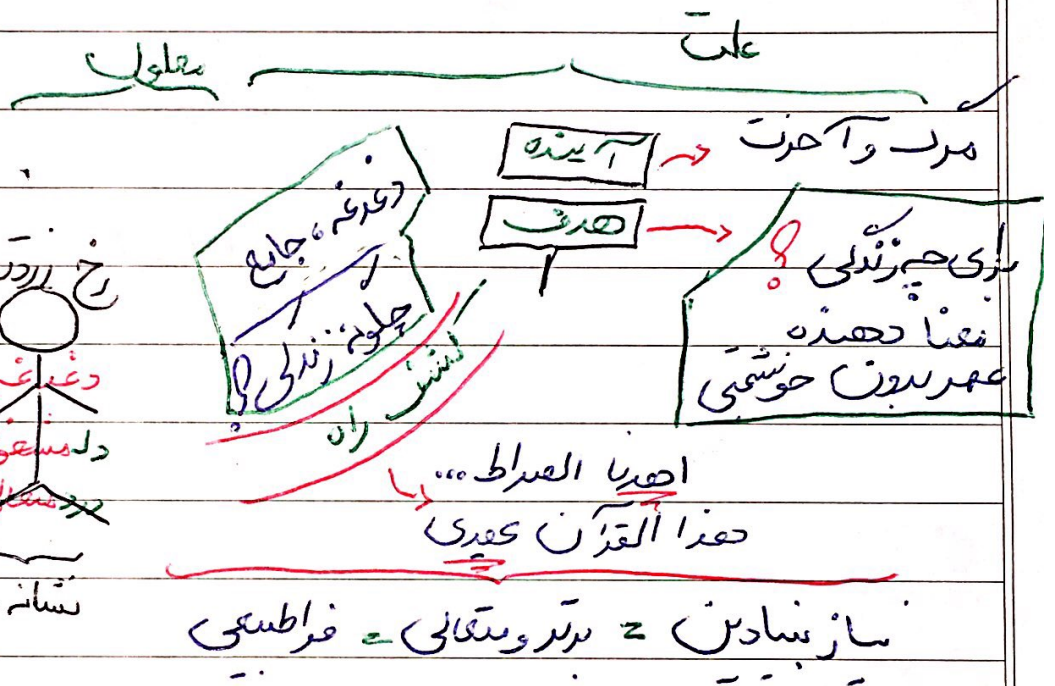 علت
معلول
مرگ و آخرت
آینده
هدف
برای چه زندگی؟
معنا دهنده
عمر بدون خوشبختی
دغدغه، جامع
چگونه زندگی؟
کشف راه
رخ زرد
دغدغه
دل مشغو
درد متعال
نشانه
اهدنا الصراط...
هذا القرآن یهدی
نیاز بنیادین = برتر و متعالی = فراطبیعی